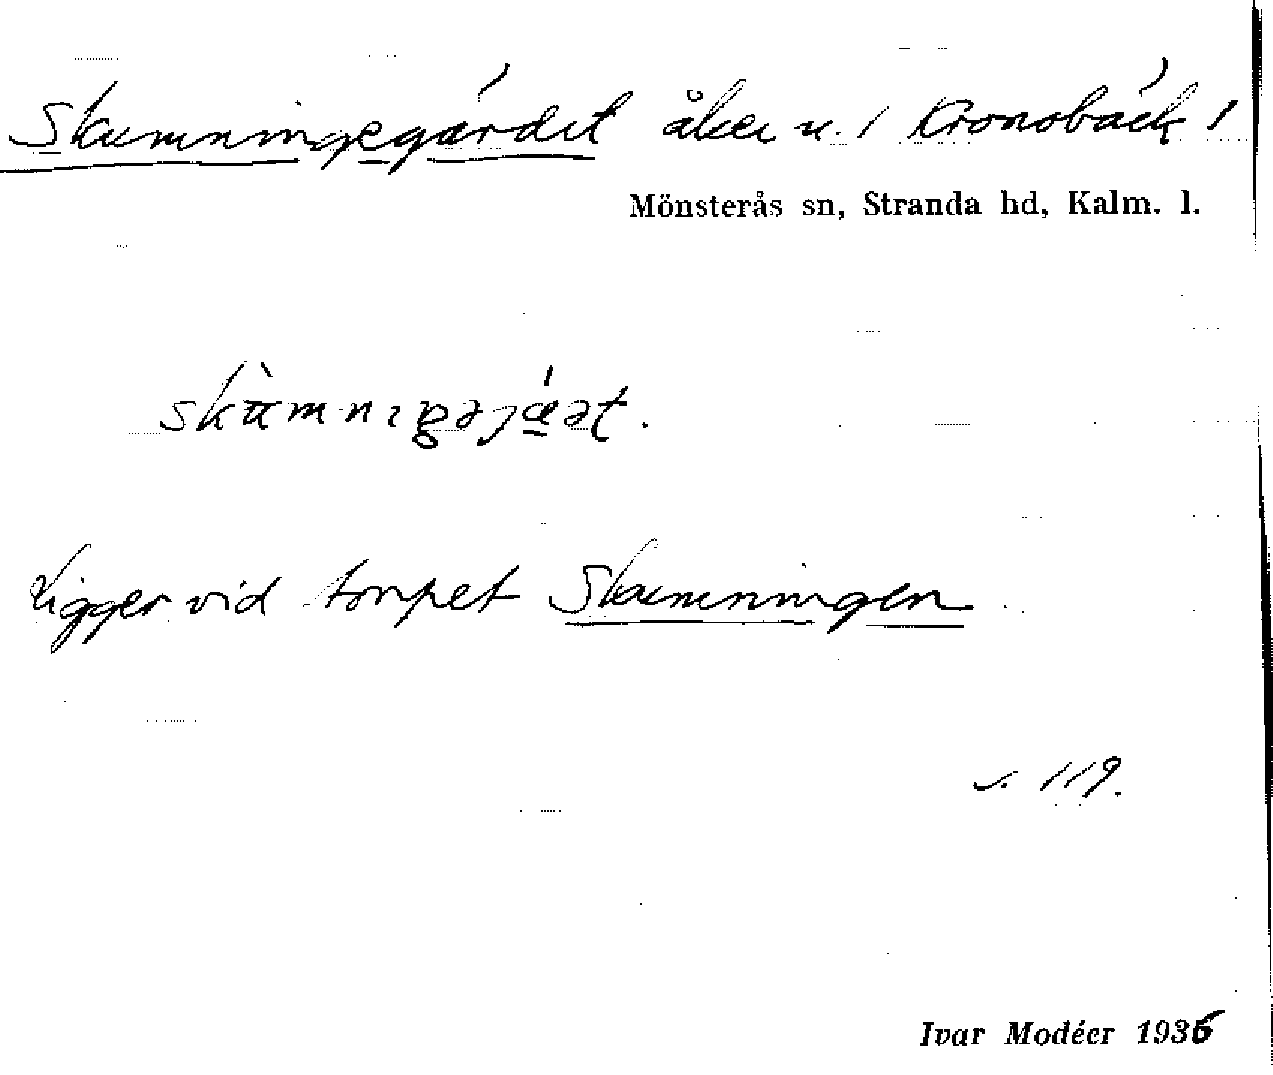 Skumningegärdet åker u. / Kronobäck /
Mönsterås sn, Stranda hd, Kalm. l.
Ligger vid torpet Skumningen
s. 119.
Ivar Modéer 1936